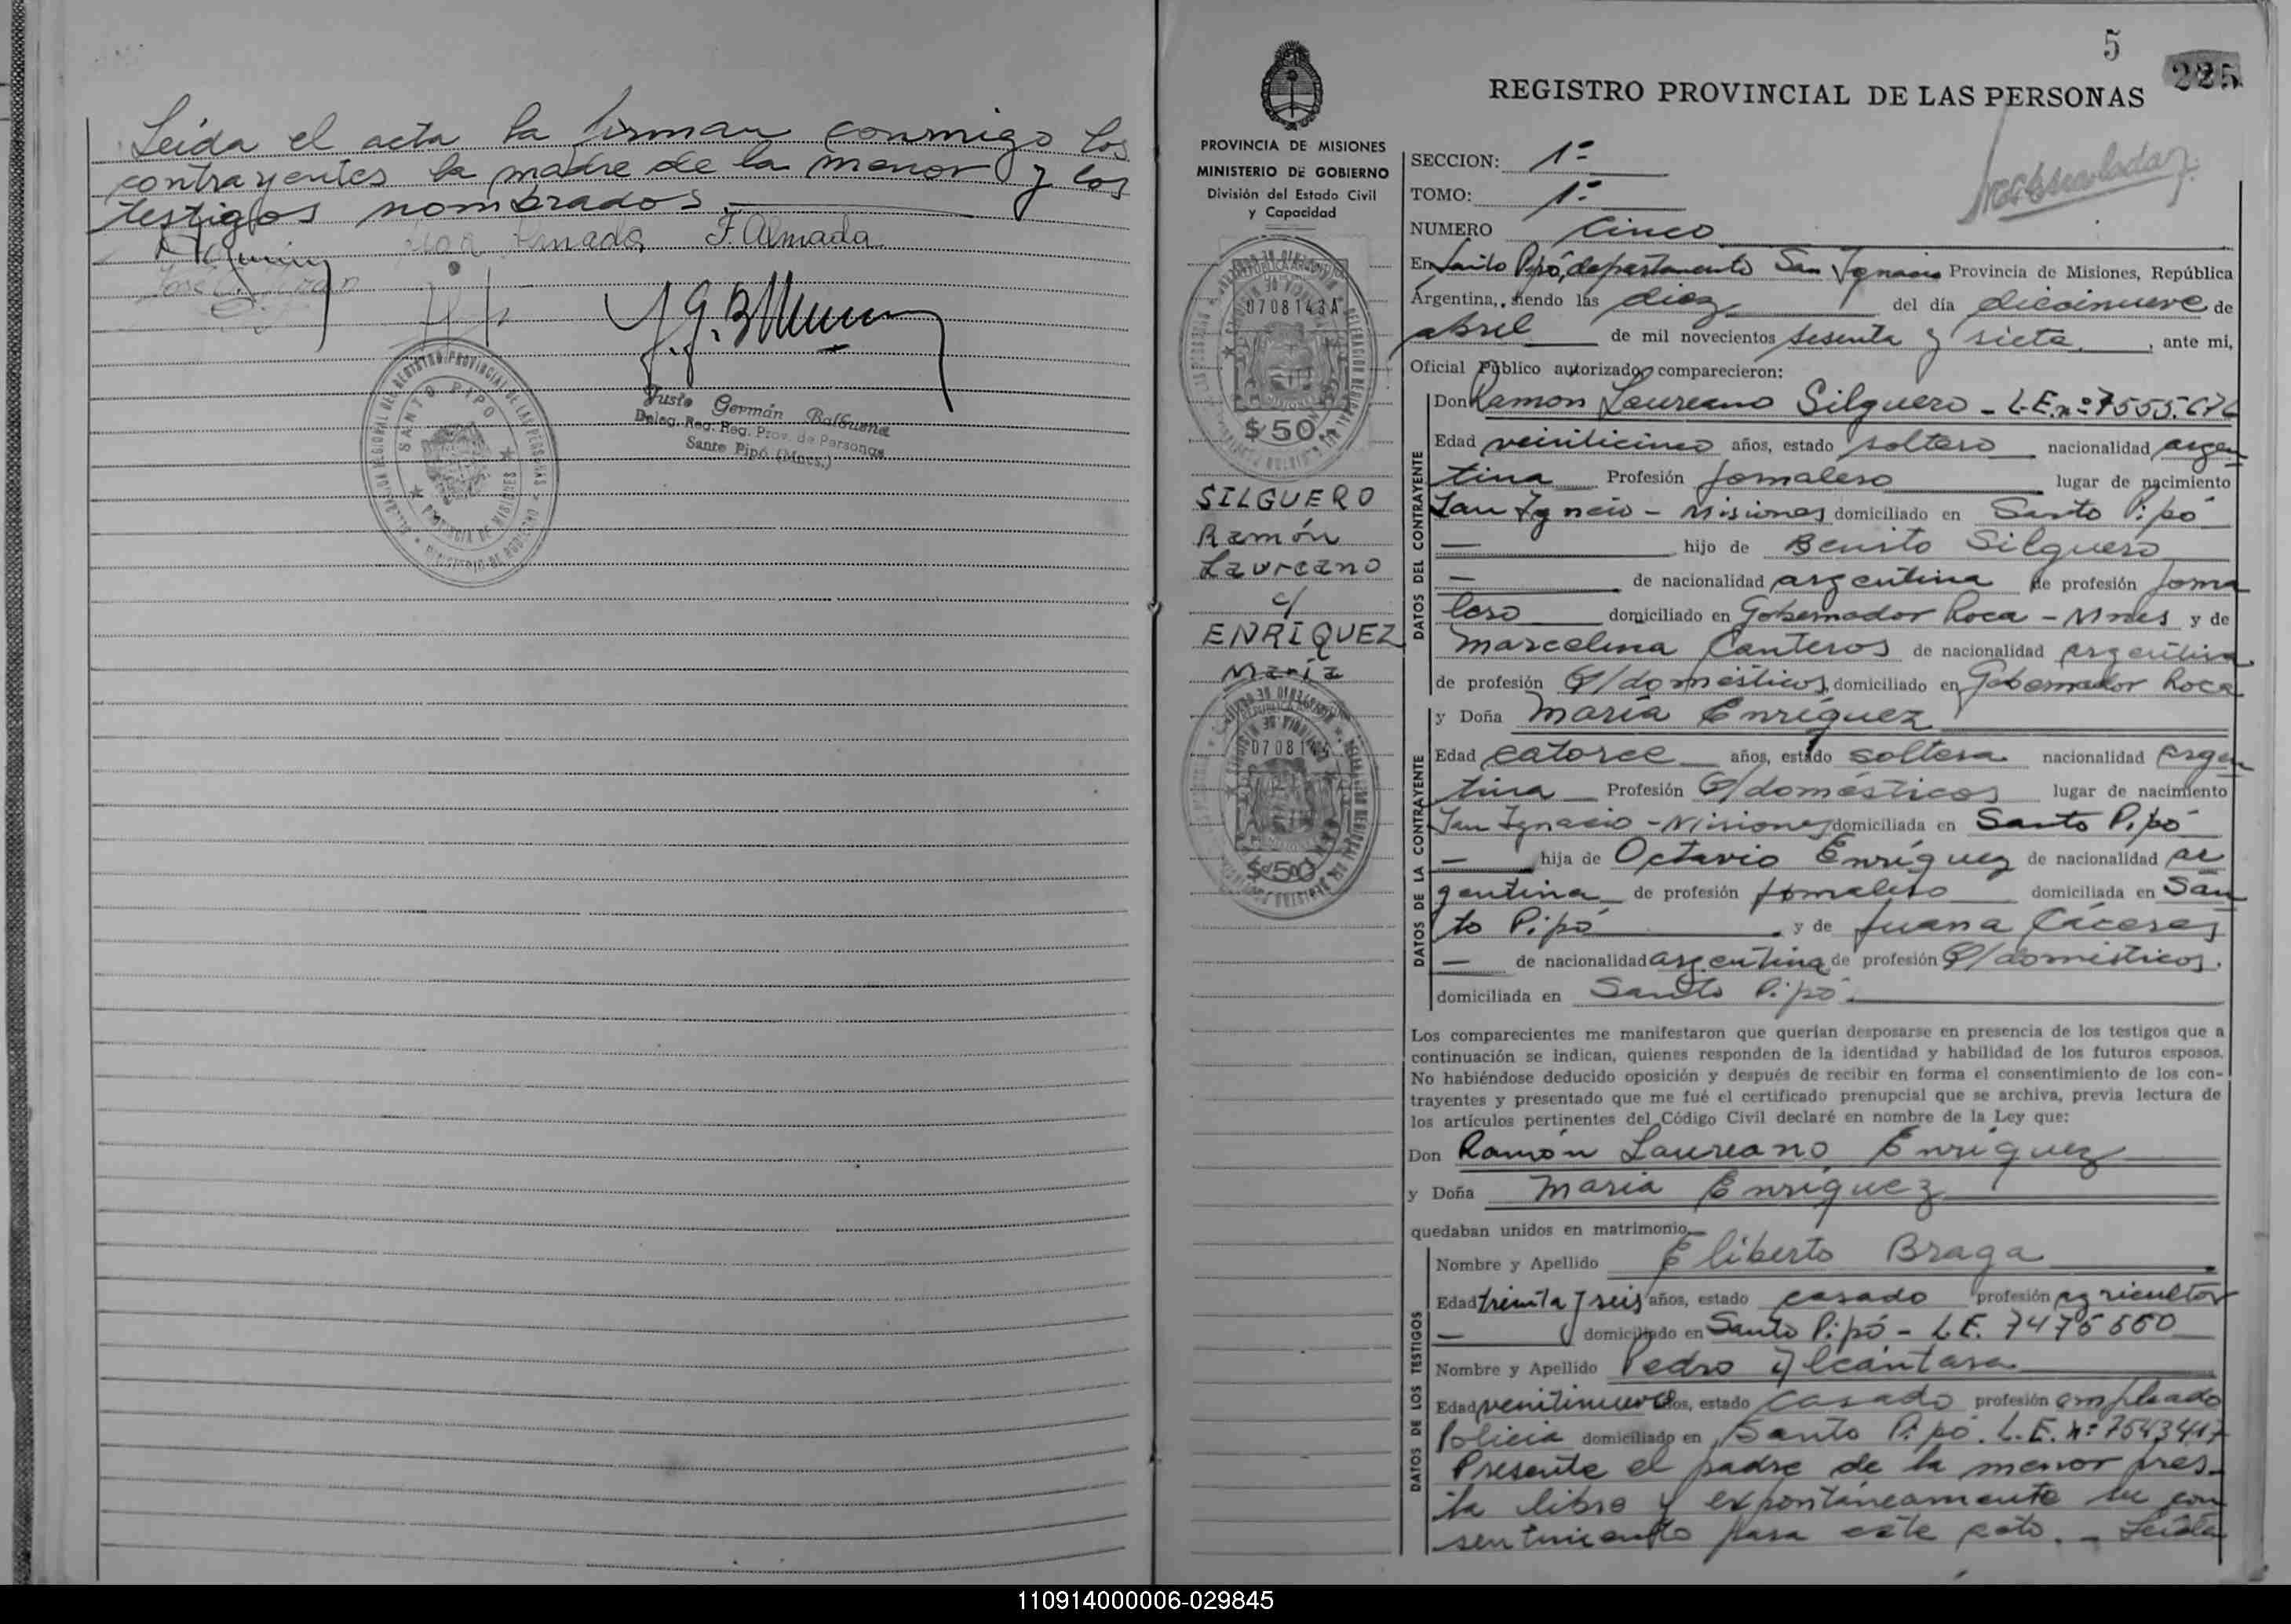 Leída el acta la firman conmigo los
contrayentes la madre de la menor y los
testigos nombrados.
F. Almada
J. G. B
Justo Germán Balbuena
Deleg. Reg. Reg. Prov. de Personas
Santo Pipó (Mnes.)
SANTO PIPO
PROVINCIA DE MISIONES
5
225
REGISTRO PROVINCIAL DE LAS PERSONAS
PROVINCIA DE MISIONES
MINISTERIO DE GOBIERNO
División del Estado Civil
y Capacidad
0708143A
$ 50
SILGUERO
Ramón
Laureano
c/
ENRIQUEZ
María
$ 50
SECCION: 1ª
TOMO: 1º
NUMERO Cinco
En Santo Pipó, departamento San Ignacio Provincia de Misiones, República
Argentina, siendo las diez del día diecinueve de
abril de mil novecientos sesenta y siete, ante mi,
Oficial Público autorizado comparecieron:
DATOS DEL CONTRAYENTE
Don Ramon Laureano Silguero - L.E. nº 7555.676
Edad veinticinco años, estado soltero nacionalidad argen
tina Profesión Jornalero lugar de nacimiento
San Ignacio - Misiones domiciliado en Santo Pipó
hijo de Benito Silguero
de nacionalidad argentina de profesión Jorna
lero domiciliado en Gobernador Roca - Mnes y de
Marcelina Canteros de nacionalidad argentina
de profesión Q/domésticos domiciliado en Gobernador Roca
DATOS DE LA CONTRAYENTE
y Doña María Enríquez
Edad catorce años, estado soltera nacionalidad argen
tina Profesión Q/domésticos lugar de nacimiento
San Ignacio - Misiones domiciliada en Santo Pipó
hija de Octavio Enríquez de nacionalidad ar
gentina de profesión jornalero domiciliada en San
to Pipó y de Juana Cáceres
de nacionalidad argentina de profesión Q/domésticos.
domiciliada en Santo Pipó.
Los comparecientes me manifestaron que querían desposarse en presencia de los testigos que a
continuación se indican, quienes responden de la identidad y habilidad de los futuros esposos.
No habiéndose deducido oposición y después de recibir en forma el consentimiento de los con-
trayentes y presentado que me fué el certificado prenupcial que se archiva, previa lectura de
los artículos pertinentes del Código Civil declaré en nombre de la Ley que:
Don Ramón Laureano Enríquez
y Doña María Enríquez
quedaban unidos en matrimonio
DATOS DE LOS TESTIGOS
Nombre y Apellido Eliberto Braga
Edad treinta y seis años, estado casado profesión agricultor
domiciliado en Santo Pipó - L.E. 7475550
Nombre y Apellido Pedro Alcántara
Edad venitinueve años, estado casado profesión empleado
Policía domiciliado en Santo Pipó. L.E. nº 7543417
Presente el padre de la menor pres-
ta libre y expontáneamente su con
sentimiento para este acto. - Leída
110914000006-029845